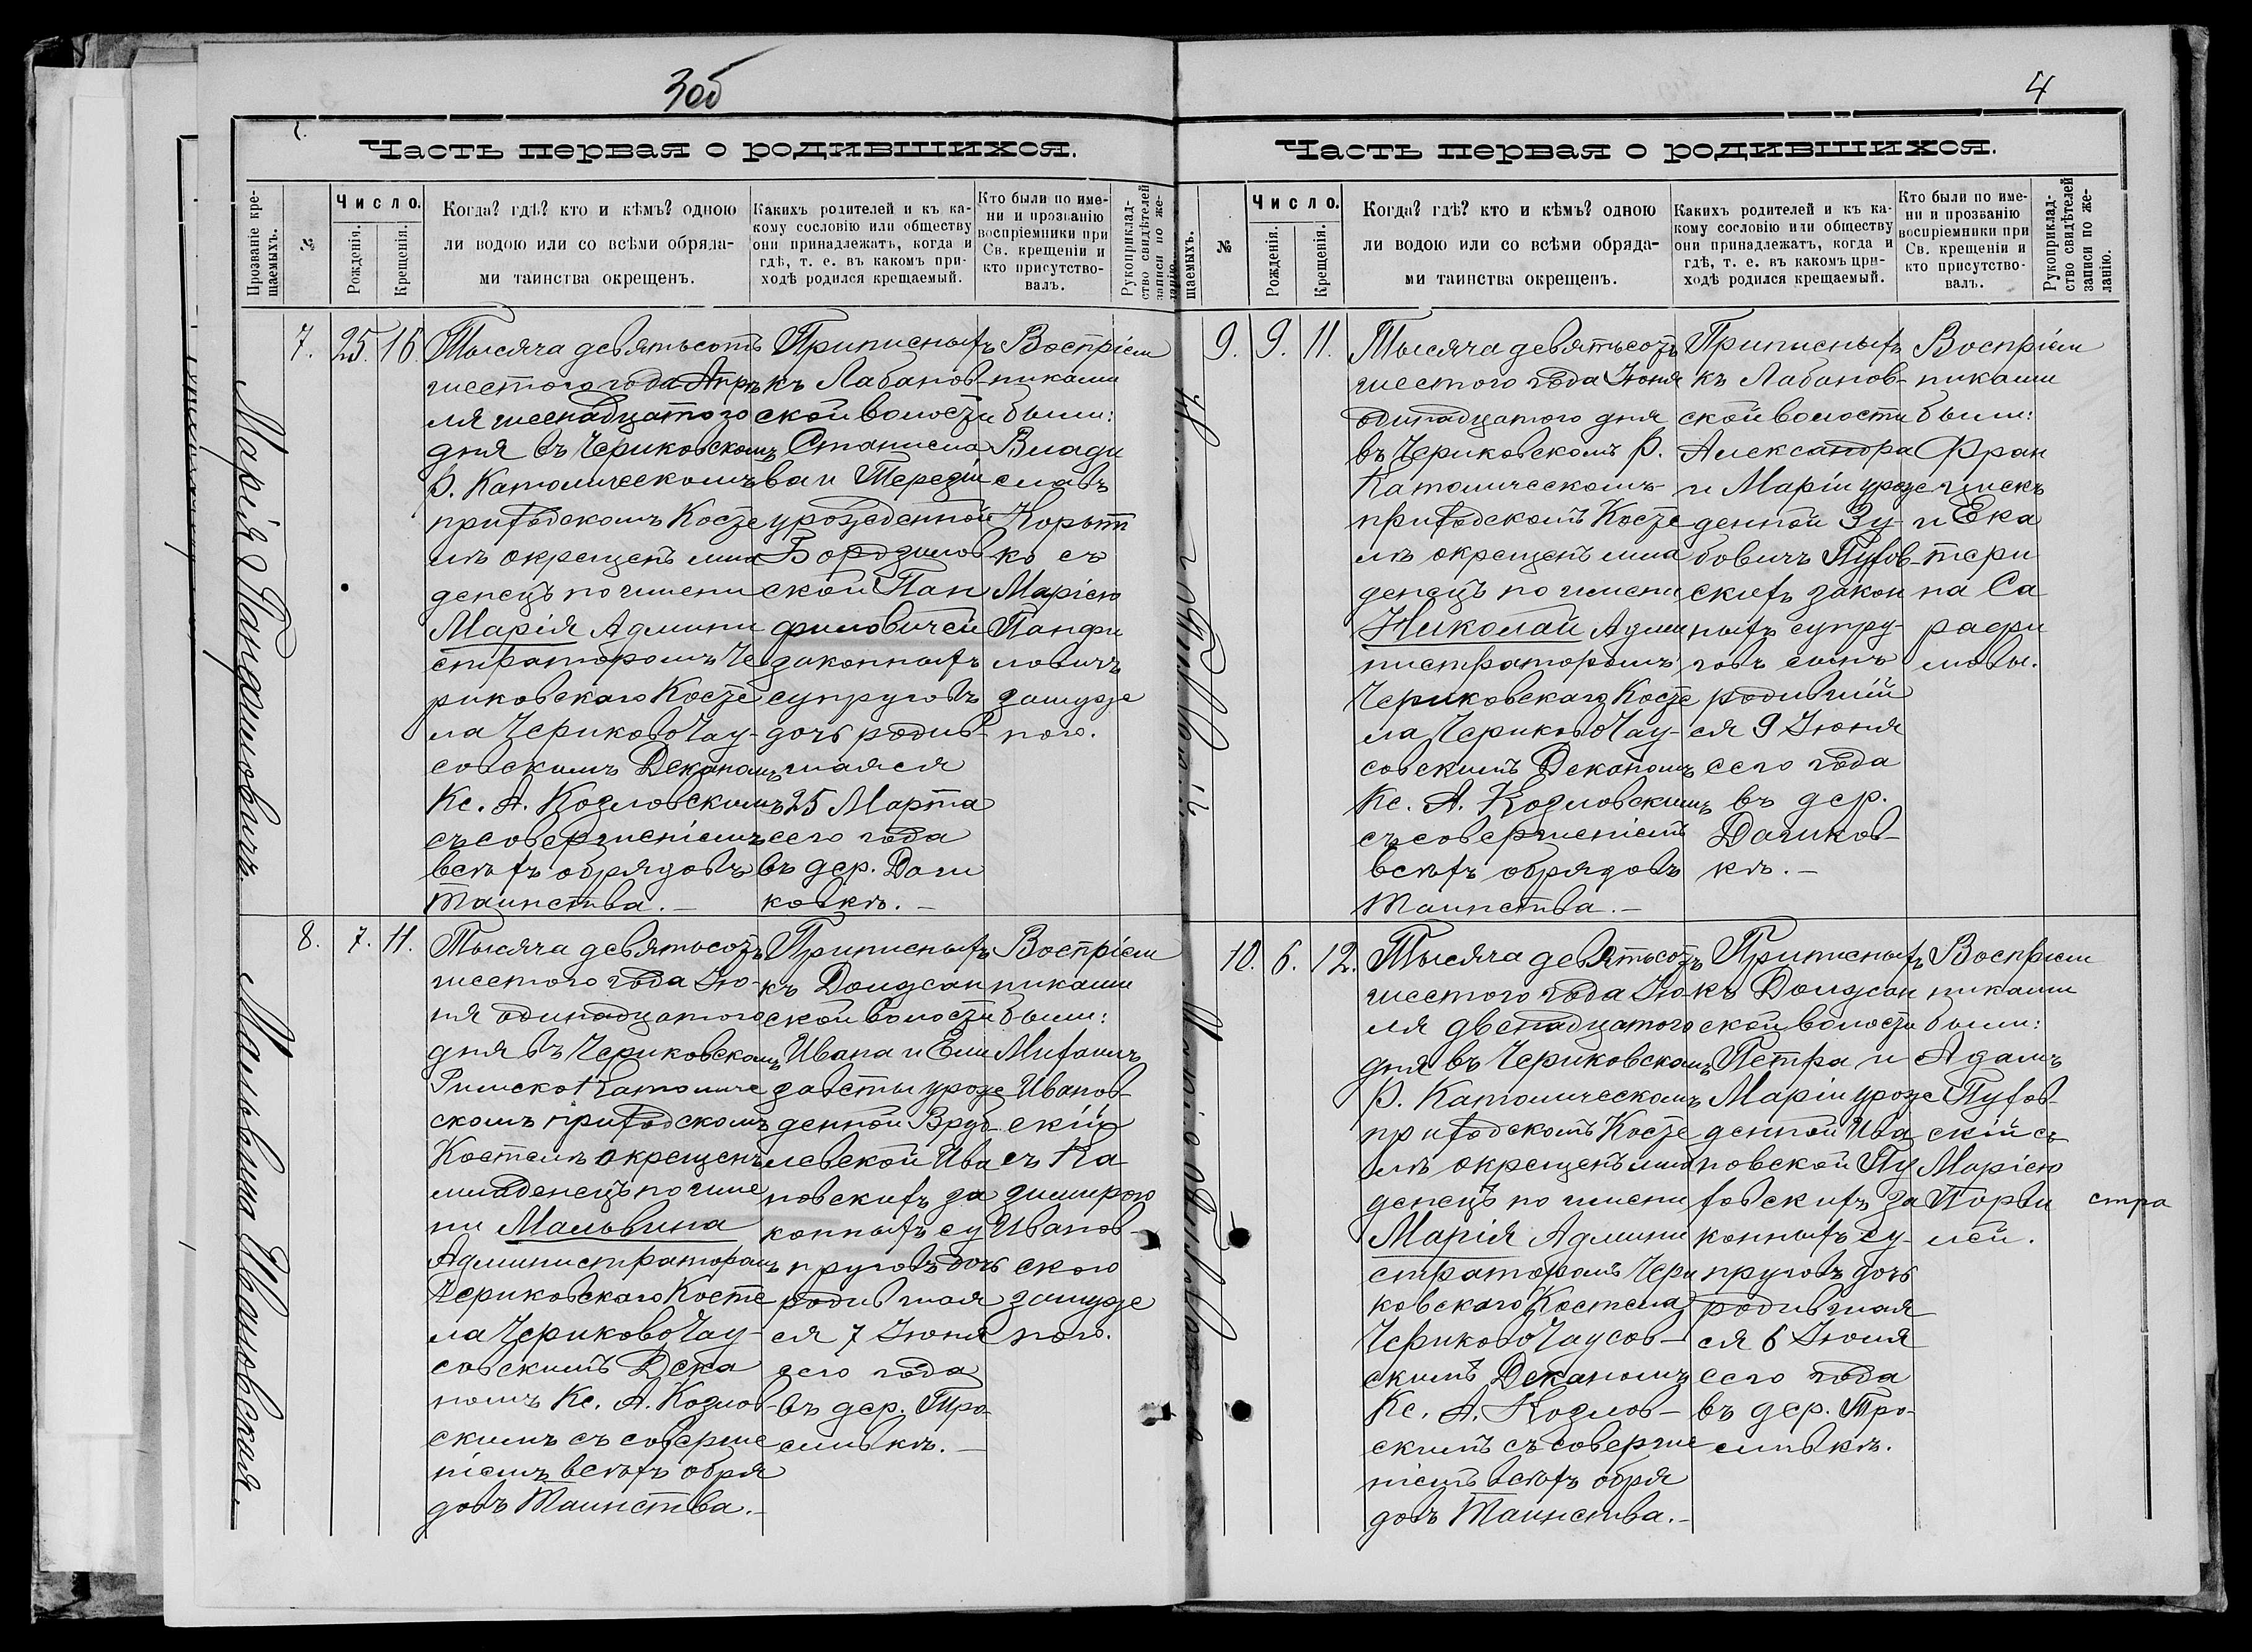 3об
Часть первая о родившихся.
Прозваніе крещаемыхъ.
№
Число.
Рожденія.
Крещенія.
Когда? гдѣ? кто и кѣмъ? одною
ли водою или со всѣми обряда-
ми таинства окрещенъ.
Какихъ родителей и къ ка-
кому сословію или обществу
они принадлежатъ, когда и
гдѣ, т. е. въ какомъ при-
ходѣ родился крещаемый.
Кто были по име-
ни и прозванію
воспріемники при
Св. крещеніи и
кто присутство-
валъ.
Рукоприклад-
ство свидѣтелей
записи по же-
ланію.
Марія Панфиловичъ.
7.
25.
16.
Тысяча девятьсотъ
шестого года Апрѣ
ля шестнадцатого
дня въ Чериковскомъ
Р. Католическомъ
приходскомъ Косте
лѣ окрещенъ мла
денецъ по имени
Марія Админи
страторомъ Че
риковскаго Косте
ла Чериково Чау-
совскимъ Деканомъ
Кс. А. Козловскимъ
съ совершеніемъ
всѣхъ обрядовъ
Таинства.–
Приписныхъ
къ Лабанов-
ской волости
Станисла
ва и Терезіи
урожденной
Бородзилов
ской Пан
филовичей
законныхъ
супруговъ
дочь родив-
шаяся
25 Марта
сего года
въ дер. Даши
ковкѣ.–
Воспріем
никами
были:
Влади
славъ
Корытт
ко съ
Маріею
Панфи
ловичъ
замуже
ного.
Мальвина Ивановская.
8.
7.
11.
Тысяча девятьсотъ
шестого года Ію-
ня одинадцатого
дня въ Чериковскомъ
Римско Католиче
скомъ приходскомъ
Костелѣ окрещенъ
младенецъ по име
ни Мальвина
Администраторомъ
Чериковскаго Косте
ла Чериково Чау-
совскимъ Дека
номъ Кс. А. Козлов-
скимъ съ соверше
ніемъ всѣхъ обря
довъ Таинства.–
Приписныхъ
къ Должан
ской волости
Ивана и Ели
заветы уроже
денной Вруб-
левской Ива
новскихъ за
конныхъ су
пруговъ дочь
родившая
ся 7 Іюня
сего года
въ дер. Тро-
сливкѣ.–
Воспріем
никами
были:
Михаилъ
Иванов-
скій
съ Ка
зимирою
Иванов-
ского
замуже
ного.
4
Часть первая о родившихся.
щаемыхъ.
№
Число.
Рожденія.
Крещенія.
Когда? гдѣ? кто и кѣмъ? одною
ли водою или со всѣми обряда-
ми таинства окрещенъ.
Какихъ родителей и къ ка-
кому сословію или обществу
они принадлежатъ, когда и
гдѣ, т. е. въ какомъ при-
ходѣ родился крещаемый.
Кто были по име-
ни и прозванію
воспріемники при
Св. крещеніи и
кто присутство-
валъ.
Рукоприклад-
ство свидѣтелей
записи по же-
ланію.
9.
9.
11.
Тысяча девятьсотъ
шестого года Іюня
одинадцатого дня
въ Чериковскомъ Р.
Католическомъ
приходскомъ Косте
лѣ окрещенъ мла
денецъ по имени
Николай Адми
нистраторомъ
Чериковскаго Косте
ла Чериково Чау-
совскимъ Деканомъ
Кс. А. Козловскимъ
съ совершеніемъ
всѣхъ обрядовъ
Таинства.–
Приписныхъ
къ Лабанов-
ской волости
Александра
и Маріи уроже
денной Зу-
бовичъ Пухов-
скихъ закон
ныхъ супру-
говъ сынъ
родившій
ся 9 Іюня
сего года
въ дер.
Дашков-
кѣ.–
Воспріем
никами
были:
Фран
цискъ
и Ека
тери
на Са
рафи
ловы.
10.
6.
12.
Тысяча девятьсотъ
шестого года Ію-
ля двенадцатого
дня въ Чериковскомъ
Р. Католическомъ
приходскомъ Косте
лѣ окрещенъ мла
денецъ по имени
Марія Админи
страторомъ Чери
ковскаго Костела
Чериково Чаусов-
скимъ Деканомъ
Кс. А. Козлов-
скимъ съ соверше
ніемъ всѣхъ обря
довъ Таинства.–
Приписныхъ
къ Должан
ской волости
Петра и
Маріи уроже
денной Ива
новской Пу
ховскихъ за
конныхъ су-
пруговъ дочь
родившая
ся 6 Іюля
сего года
въ дер. Тро-
сливкѣ.
Воспріем
никами
были:
Адамъ
Пухов-
скій съ
Маріею
Порви
лей.
стра